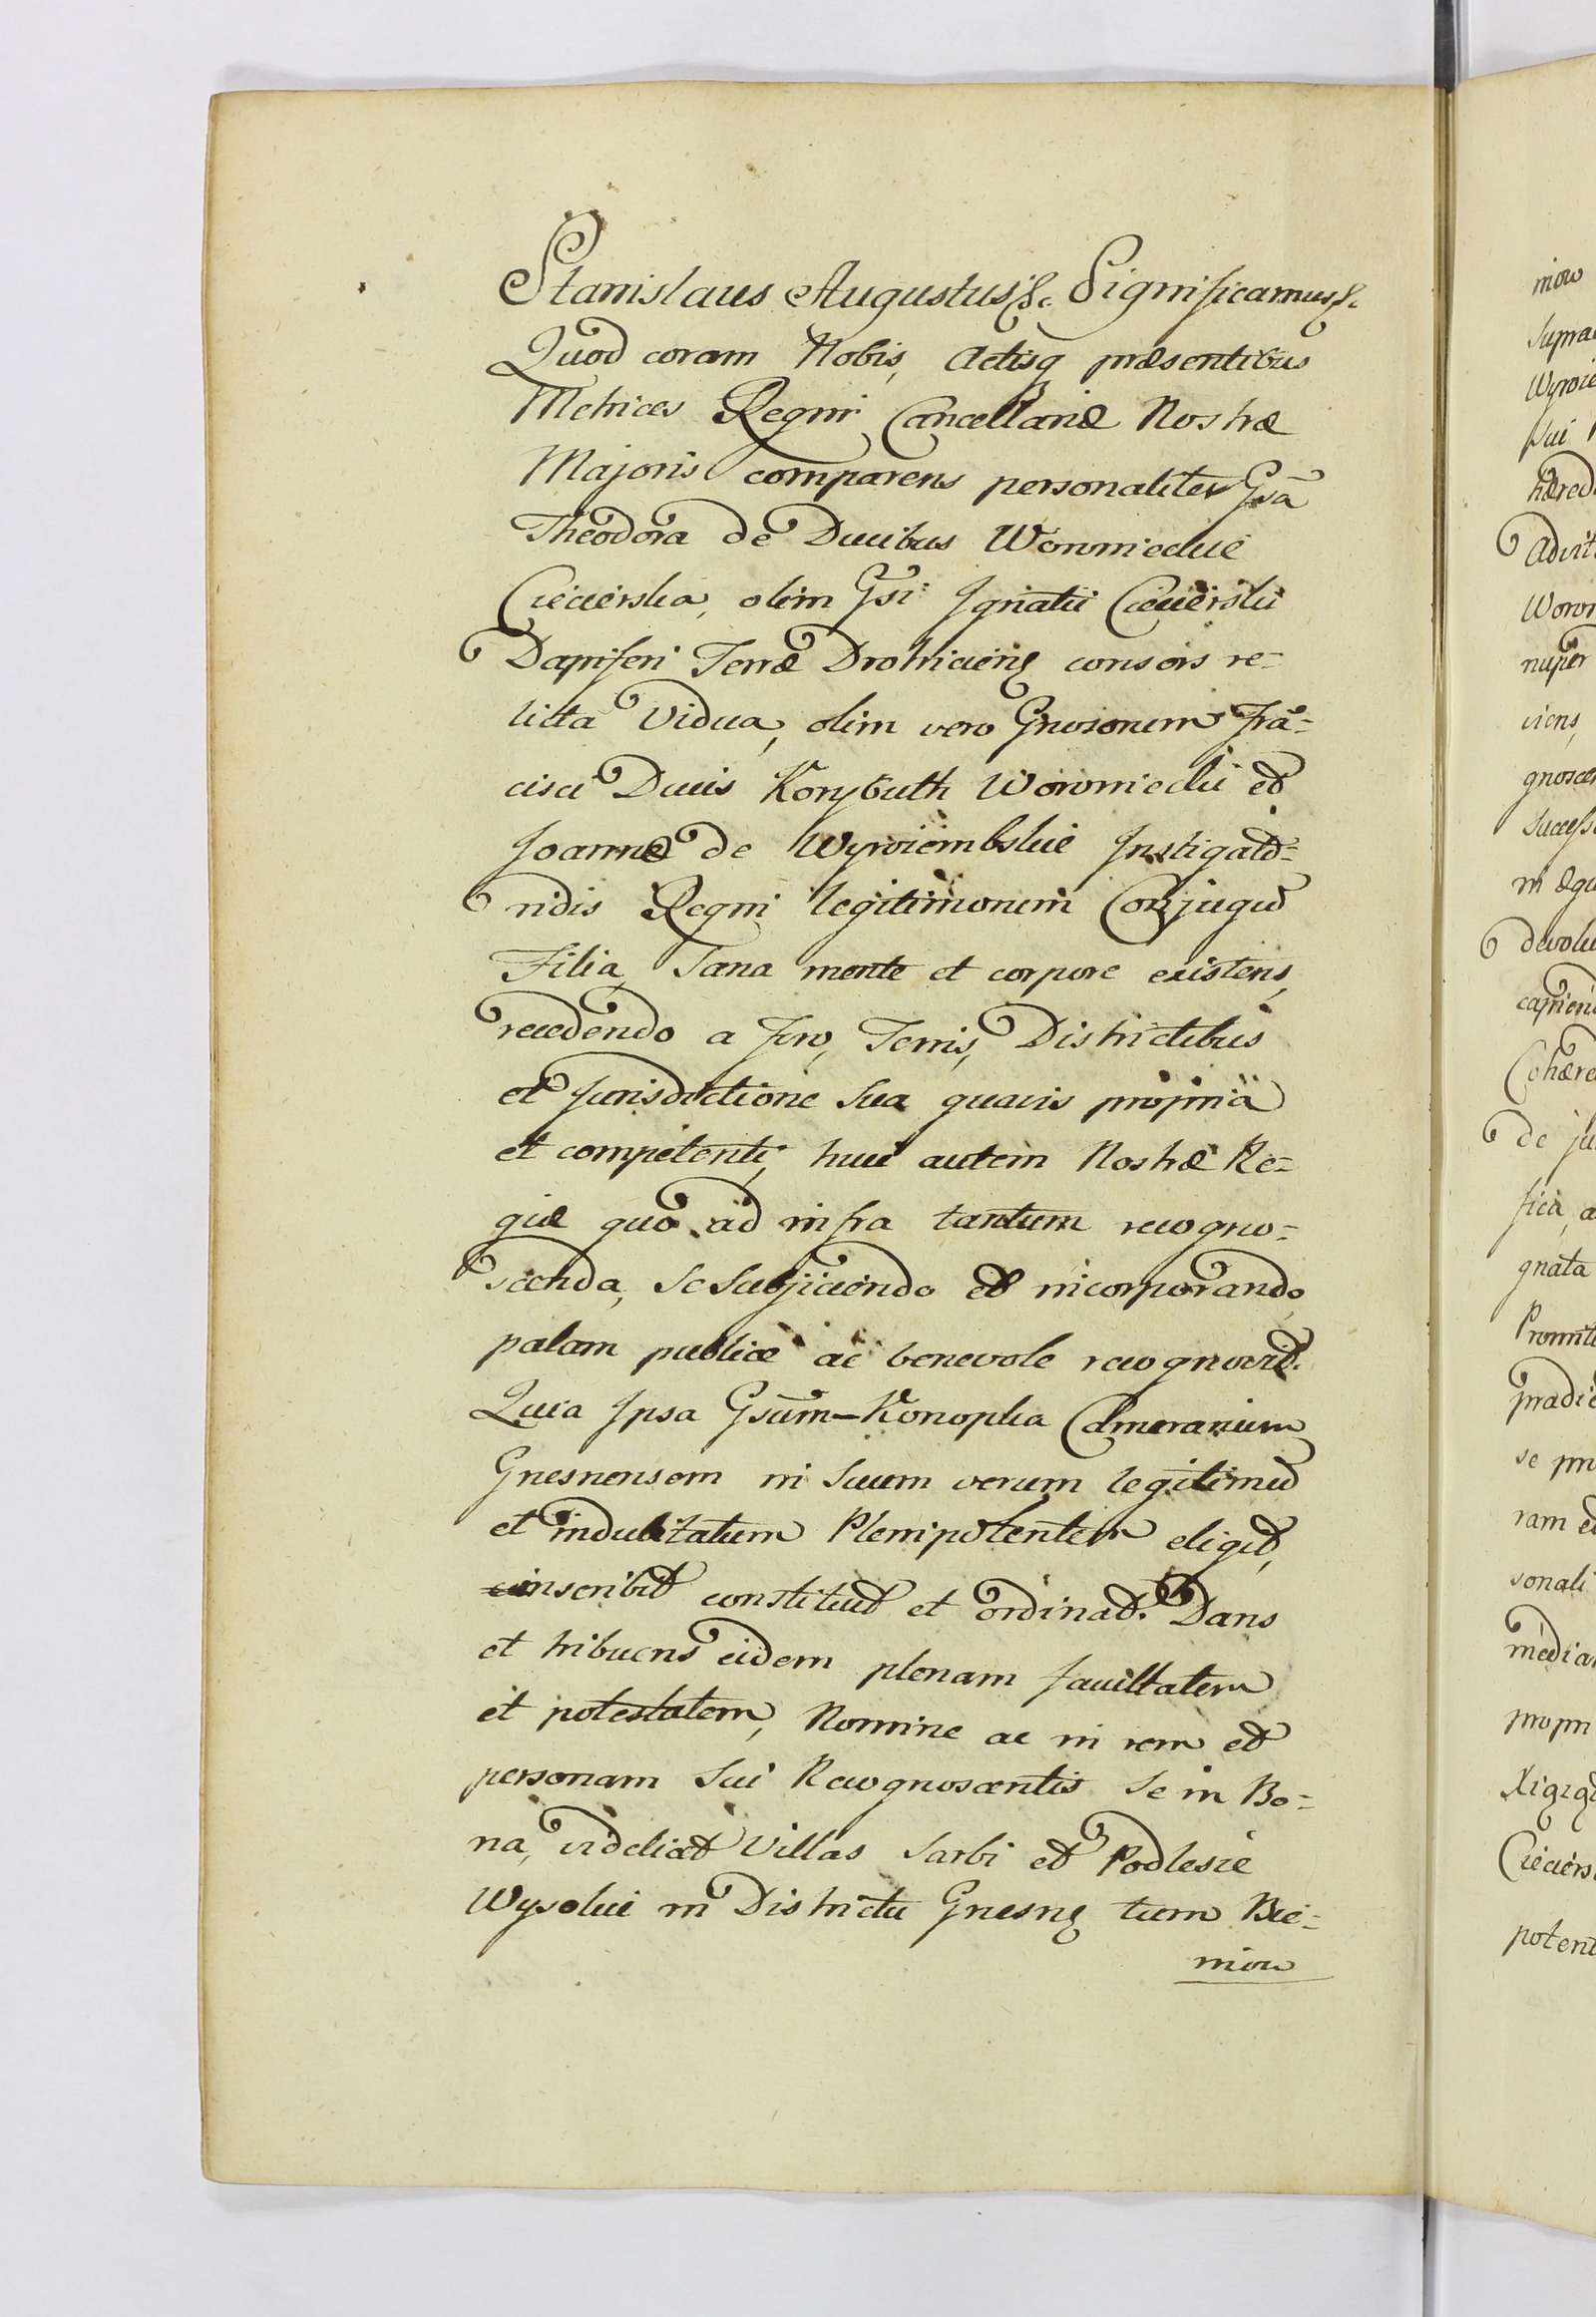 Stanislaus Augustus &c. Significamus &c.
Quod coram Nobis, Actisq præsentibus
Metrices Regni Cancellariæ Nostræ
Majoris comparens personaliter Gsã
Theodora de Ducibus Woronieckie
Ciecierska, olim Gsi: Ignatii Ciecierski
Dapiferi Terræ Drohiciens consors re=
licta Vidua, olim vero Gnosorum Frã=
cisci Ducis Korybuth Woroniecki et
Joannæ de Wyroiembskie Instigato=
ridis Regni legitimorum Conjugũ
Filia, Sana mente et corpore existens,
recedendo a Foro, Terris, Districtibus
et Jurisdictione Sua quavis propria
et competenti, huic autem Nostræ Re=
giæ quo ad infra tantum recogno=
scenda, se subjiciendo et incorporando,
palam publice ac benevole recognovit.
Quia Ipsa Gsũm Konopka Camerarium
Gnesnensem in Suum verum legitimũ
et indubitatum Plenipotentem eligit,
inscribit constituit et ordinat. Dans
et tribuens eidem plenam facultatem
et potestatem, Nomine ac in rem et
personam Sui Recognoscentis se in Bo=
na, videlicet Villas Sarbi et Podlesie
Wysokie in Districtu Gnesns tum Bie=
niow
niow
Supra
Wyroie
Sui
hæred
Advit
Woron
nuper
viens,
gnoscen
Success
in æqu
devolu
capien
Cohære
de ju
fica, a
gnata
Promitt
prædic
se pro
ram et
sonali
median
propri
Cieciers
potent